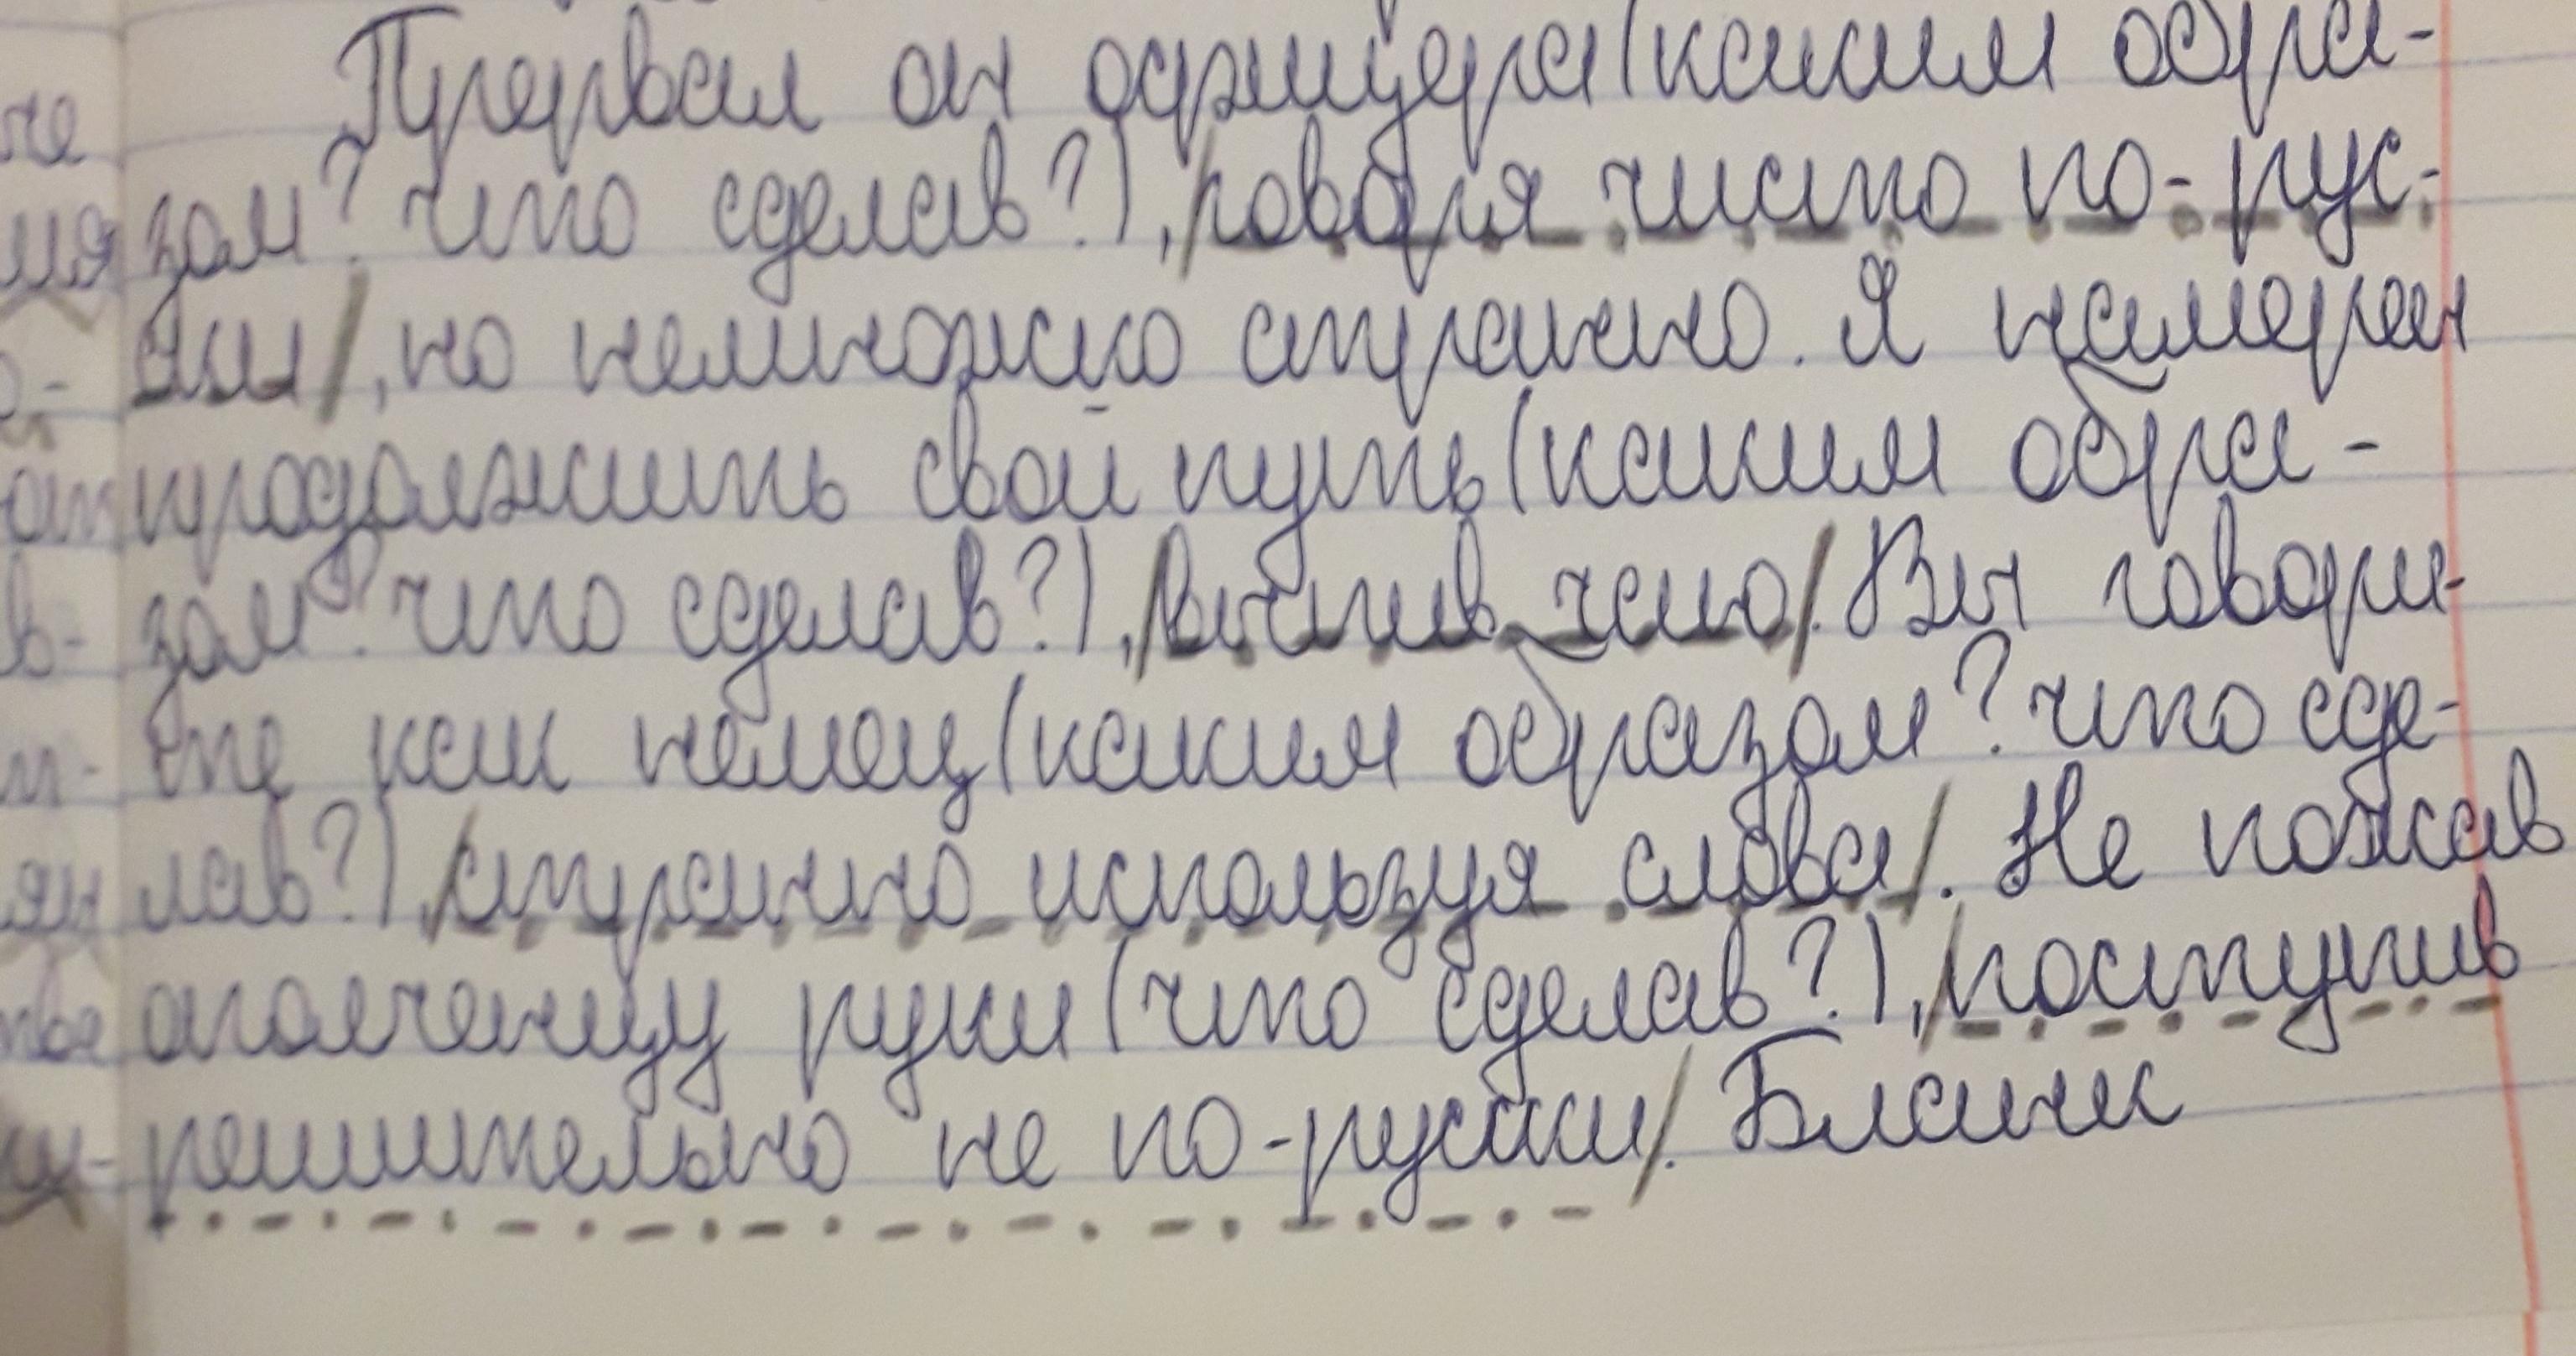 Прервал он офицера(каким обра-
че зом? что сделав?),/говоря чисто по-рус-
ния ски/, но немножко странно. Я намерен
продолжить свой путь(каким обра-
зом? что сделав?),/выпив чаю/. Вы говори-
те как немец(каким образом? что сде-
лав?),/странно используя слова/. Не пожав
ополченцу руки(что сделав?),/поступив
решительно не по-русски/. Бланк